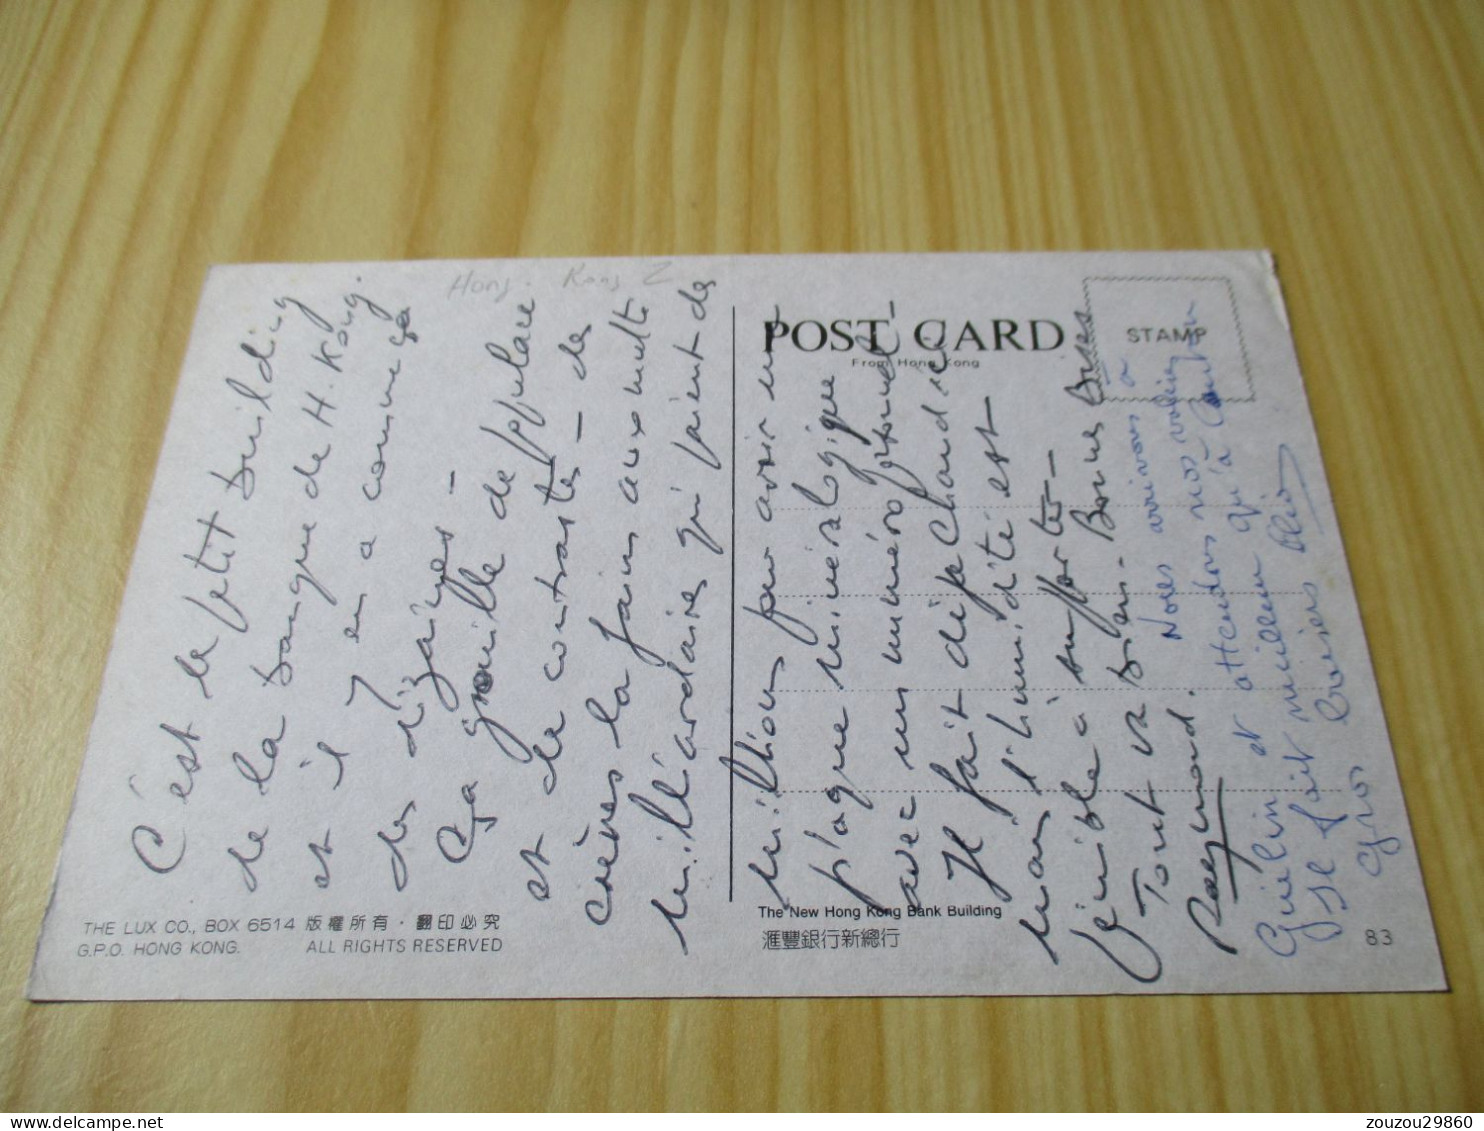 Hong-Kong 2
C'est le petit building
de la banque de H. Kong.
et il y en a comme ça
des dizaines -
ça grouille de populace
et de contrastes - de
crèves la faim aux multi
milliardaires qui paient des
POST CARD
From Hong Kong
STAMP
millions pour avoir une
plaque minéralogique
avec un numéro
Il fait déjà chaud ici
mais l'humidité est
pénible à supporter -
Tout va bien. Bonnes Bises
Raymond.
Nous arrivons à
Guilin et attendons nos valises
Il fait meilleur qu'à Canton
Gros baisers
THE LUX CO., BOX 6514 版權所有・翻印必究
G.P.O. HONG KONG. ALL RIGHTS RESERVED
The New Hong Kong Bank Building
滙豐銀行新總行
83
zouzou29860